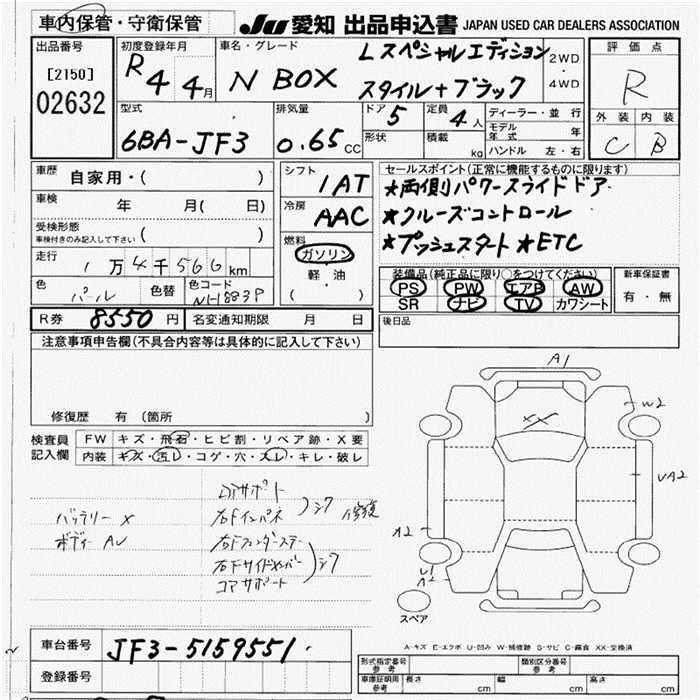 車内保管・守衛保管 JU 愛知 出品申込書 JAPAN USED CAR DEALERS ASSOCIATION
出品番号 初度登録年月 車名・グレード 評価点
[2150] R4 4月 N BOX Lスペシャルエディション 2WD ・ 4WD R
02632 スタイル+ブラック 外装 内装
型式 排気量 ドア 5 定員 4人 ディーラー・並行 C B
6BA-JF3 0.65 CC 形状 積載 kg モデル年式 年
ハンドル 左・右
車歴 自家用・( ) シフト 1AT セールスポイント(正常に機能するものに限ります)
車検 年 月( 日) 冷房 AAC ★両側パワースライドドア
受検形態 ★クルーズコントロール
車検付きのみ記入して下さい ( ) 燃料 ★プッシュスタート ★ETC
走行 1万4千566km ガソリン 装備品(純正品に限り○をつけてください) 新車保証書
色 パール 色替 色コード NH883P 軽・油 PS PW エアB AW 有・無
( ) SR ナビ TV カワシート
R券 8550円 名変通知期限 月 日 後日品
注意事項申告欄(不具合内容等は具体的に記入して下さい)
A1
修復歴 有 (箇所
XX W2
検査員 FW キズ・飛石・ヒビ割・リペア跡・X要
記入欄 内装 キズ・汚し・コゲ・穴・スレ・キレ・破レ
UA2
バッテリー X
右Fインパネ
ボディ AU
A2
コアサポート
スペア
車台番号 JF3-5159551
A-キズ E-エクボ U-凹み W-補修跡 S-サビ C-腐食 XX-交換済
登録番号 形式指定番号 参考 類別区分番号 参考
車庫証明用 参考 長さ cm 幅 cm 高さ cm